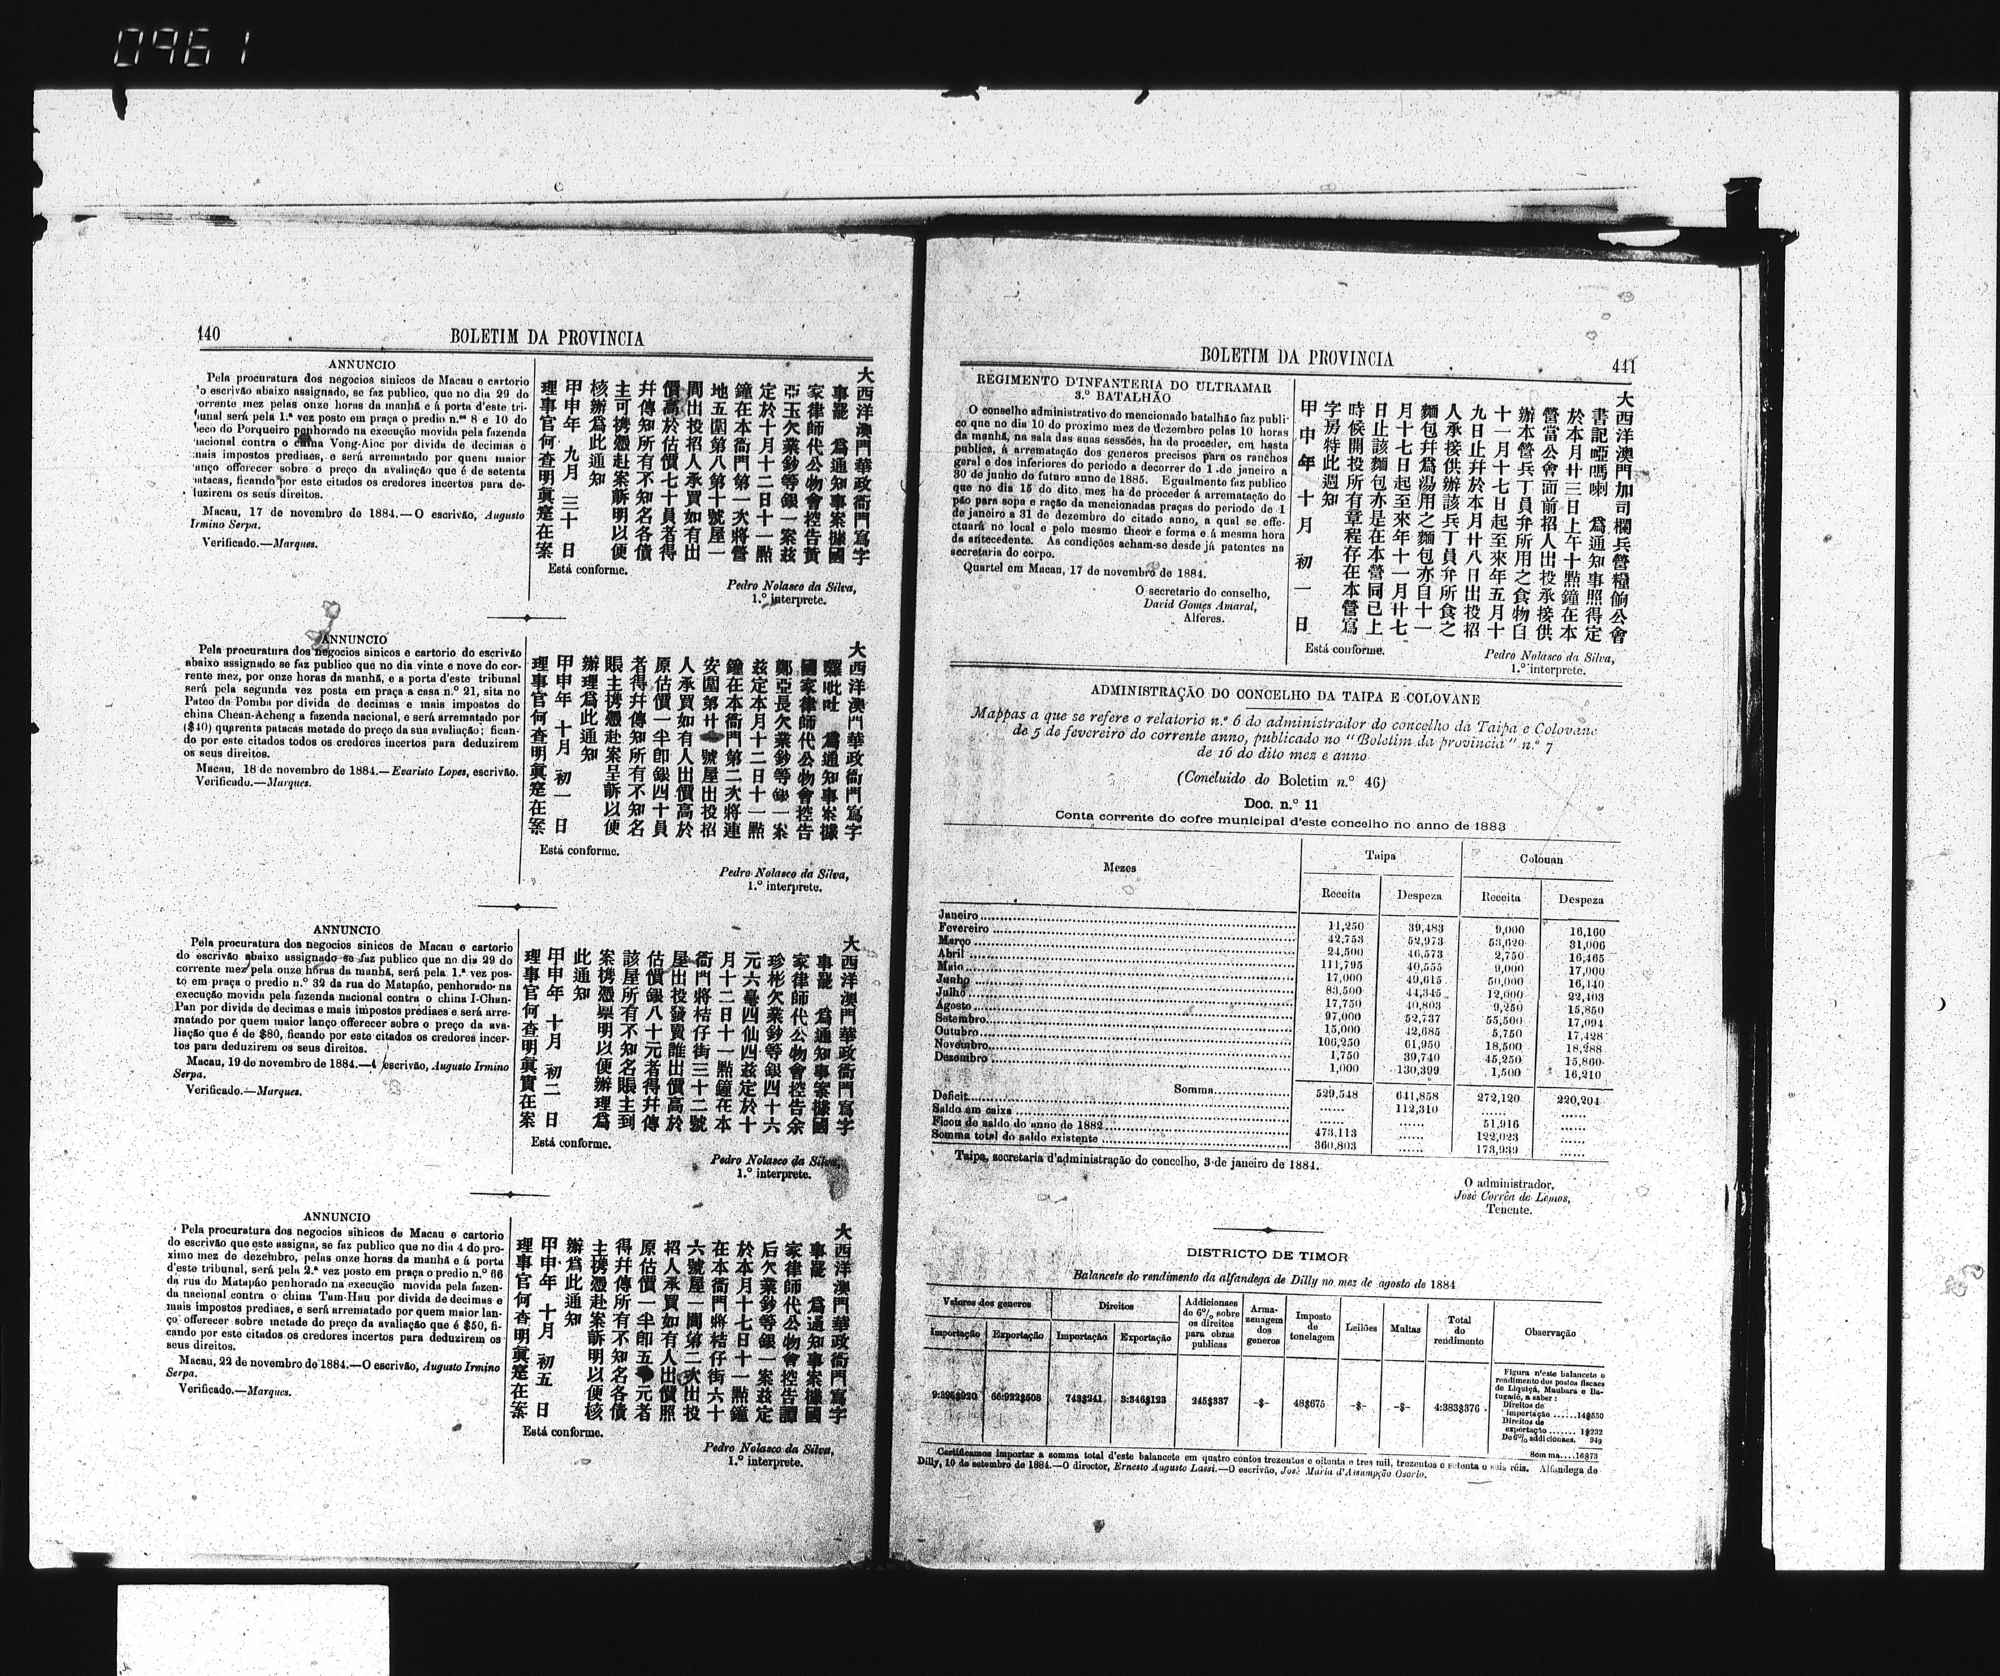 0961
440
BOLETIM DA PROVINCIA
ANNUNCIO
Pela procuratura dos negocios sinicos de Macau e cartorio
'o escrivão abaixo assignado, se faz publico, que no dia 29 do
orrente mez pelas onze horas da manhã e á porta d'este tri-
unal será pela 1.ª vez posto em praça o predio n.ºˢ 8 e 10 do
beco do Porqueiro penhorado na execução movida pela fazenda
nacional contra o china Vong-Aioc por divida de decimas e
mais impostos prediaes, e será arrematado por quem maior
anço offerecer sobre o preço da avaliação que é de setenta
patacas, ficando por este citados os credores incertos para de-
luzirem os seus direitos.
Macau, 17 de novembro de 1884.—O escrivão, Augusto
Irmino Serpa.
Verificado.—Marques.
大西洋澳門華政衙門寫字
事羆 爲通知事案據國
家律師代公物會控告黃
亞玉欠業鈔等銀一案茲
定於十月十二日十一點
鐘在本衙門第一次將營
地五圍第八第十號屋一
間出投招人承買如有出
價高於估價七十員者得
幷傳知所有不知名各債
主可携憑赴案訴明以便
核辦爲此通知
甲申年 九月 三十 日
理事官何查明眞寔在案
Está conforme.
Pedro Nolasco da Silva,
1.º interprete.
ANNUNCIO
Pela procuratura dos negocios sinicos e cartorio do escrivão
abaixo assignado se faz publico que no dia vinte e nove do cor-
rente mez, por onze horas da manhã, e a porta d'este tribunal
será pela segunda vez posta em praça a casa n.º 21, sita no
Pateo da Pomba por divida de decimas e mais impostos do
china Chean-Acheng a fazenda nacional, e será arrematado por
($40) quarenta patacas metade do preço da sua avaliação; fican-
do por este citados todos os credores incertos para deduzirem
os seus direitos.
Macau, 18 de novembro de 1884.—Evaristo Lopes, escrivão.
Verificado.—Marques.
大西洋澳門華政衙門寫字
羅吡吐 爲通知事案據
國家律師代公物會控告
鄭亞長欠業鈔等銀一案
茲定本月十二日十一點
鐘在本衙門第二次將連
安圍第廿 號屋出投招
人承買如有人出價高於
原估價一半卽銀四十員
者得幷傳知所有不知名
賬主携憑赴案呈訴以便
辦理爲此通知
甲申年 十月 初一 日
理事官何查明眞寔在案
Está conforme.
Pedro Nolasco da Silva,
1.º interprete.
ANNUNCIO
Pela procuratura dos negocios sinicos de Macau e cartorio
do escrivão abaixo assignado se faz publico que no dia 29 do
corrente mez pela onze horas da manhã, será pela 1.ª vez pos-
to em praça o predio n.º 32 da rua do Matapáo, penhorado na
execução movida pela fazenda nacional contra o china I-Chun-
Pan por divida de decimas e mais impostos prediaes e será arre-
matado por quem maior lanço offerecer sobre o preço da ava-
liação que é de $80, ficando por este citados os credores incer-
tos para deduzirem os seus direitos.
Macau, 19 de novembro de 1884.— escrivão, Augusto Irmino
Serpa.
Verificado.—Marques.
大西洋澳門華政衙門寫字
事羆 爲通知事案據國
家律師代公物會控告余
珍彬欠業鈔等銀四十六
元六毫四仙四茲定於十
月十二日十一點鐘在本
衙門將桔仔街三十二號
屋出投發賣誰出價高於
估價銀八十元者得幷傳
該屋所有不知名賬主到
案携憑稟明以便辦理爲
此通知
甲申年 十月 初二 日
理事官何查明眞實在案
Está conforme.
Pedro Nolasco da Silva,
1.º interprete.
ANNUNCIO
Pela procuratura dos negocios sinicos de Macau e cartorio
do escrivão que este assigna, se faz publico que no dia 4 do pro-
ximo mez de dezembro, pelas onze horas da manhã e á porta
d'este tribunal, será pela 2.ª vez posto em praça o predio n.º 66
da rua do Matapáo penhorado na execução movida pela fazen-
da nacional contra o china Tam-Hau por divida de decimas e
mais impostos prediaes, e será arrematado por quem maior lan-
ço offerecer sobre metade do preço da avaliação que é $50, fi-
cando por este citados os credores incertos para deduzirem os
seus direitos.
Macau, 22 de novembro de 1884.—O escrivão, Augusto Irmino
Serpa.
Verificado.—Marques.
大西洋澳門華政衙門寫字
事羆 爲通知事案據國
家律師代公物會控告譚
后欠業鈔等銀一案茲定
於本月十七日十一點鐘
在本衙門將桔仔街六十
六號屋一間第二次出投
招人承買如有人出價照
原估價一半卽五 元者
得幷傳所有不知名各債
主携憑赴案訴明以便核
辦爲此通知
甲申年 十月 初五 日
理事官何查明眞寔在案
Está conforme.
Pedro Nolasco da Silva,
1.º interprete.
BOLETIM DA PROVINCIA
441
REGIMENTO D'INFANTERIA DO ULTRAMAR
3.º BATALHÃO
O conselho administrativo do mencionado batalhão faz publi-
co que no dia 10 do proximo mez de dezembro pelas 10 horas
da manhã, na sala das suas sessões, ha de proceder, em hasta
publica, á arrematação dos generos precisos para os ranchos
geral e dos inferiores do periodo a decorrer do 1 de janeiro a
30 de junho do futuro anno de 1885. Egualmente faz publico
que no dia 15 do dito mez ha de proceder á arrematação do
pão para sopa e ração da mencionadas praças do periodo de 1
de janeiro a 31 de dezembro do citado anno, a qual se effe-
ctuará no local e pelo mesmo theor e forma e á mesma hora
da antecedente. As condições acham-se desde já patentes na
secretaria do corpo.
Quartel em Macau, 17 de novembro de 1884.
O secretario do conselho,
David Gomes Amaral,
Alferes.
大西洋澳門加司欄兵營糧餉公會
書記啞嗎喇 爲通知事照得定
於本月廿三日上午十點鐘在本
營當公會面前招人出投承接供
辦本營兵丁員弁所用之食物自
十一月十七日起至來年五月十
九日止幷於本月廿八日出投招
人承接供辦該兵丁員弁所食之
麵包幷爲湯用之麵包亦自十一
月十七日起至來年十一月廿七
日止該麵包亦是在本營同已上
時候開投所有章程存在本營寫
字房特此週知
甲申年 十月 初一 日
Está conforme.
Pedro Nolasco da Silva,
1.º interprete.
ADMINISTRAÇÃO DO CONCELHO DA TAIPA E COLOVANE
Mappas a que se refere o relatorio n.º 6 do administrador do concelho da Taipa e Colovane
de 5 de fevereiro do corrente anno, publicado no "Boletim da provincia" n.º 7
de 16 do dito mez e anno
(Concluido do Boletim n.º 46)
Doc. n.º 11
Conta corrente do cofre municipal d'este concelho no anno de 1883
Mezes Taipa Colouan
Receita Despeza Receita Despeza
Janeiro 11,250 39,483 9,000 16,160
Fevereiro 42,753 52,973 53,620 31,006
Março 24,500 46,573 2,750 16,465
Abril 111,795 40,555 9,000 17,000
Maio 17,000 49,615 50,000 16,140
Junho 83,500 44,345 12,000 22,403
Julho 17,750 40,803 9,250 15,850
Agosto 97,000 52,737 55,500 17,094
Setembro 15,000 42,685 5,750 17,428
Outubro 106,250 61,950 18,500 18,288
Novembro 1,750 39,740 45,250 15,860
Dezembro 1,000 130,399 1,500 16,210
Somma 529,548 641,858 272,120 220,204
Deficit ...... 112,310 ...... ......
Saldo em caixa ...... ...... 51,916 ......
Ficou de saldo do anno de 1882 473,113 ...... 122,023 ......
Somma total do saldo existente 360,803 ...... 173,939 ......
Taipa, secretaria d'administração do concelho, 3 de janeiro de 1884.
O administrador,
José Corrêa de Lemos,
Tenente.
DISTRICTO DE TIMOR
Balancete do rendimento da alfandega de Dilly no mez de agosto de 1884
Valores dos generos Direitos Addicionaes de 6% sobre os direitos para obras publicas Armazenagem dos generos Imposto de tonelagem Leilões Multas Total do rendimento Observação
Importação Exportação Importação Exportação
9:395$920 66:922$508 743$241 3:346$123 245$337 -$- 48$675 -$- -$- 4:383$376
Figura n'este balancete o
rendimento dos postos fiscaes
de Liquiçá, Maubara e Ba-
tugadé, a saber:
Direitos de
importação ......14$550
Direitos de
exportação ....... 1$232
De 6% addicionaes. 949
Somma....16$73
Certificamos importar a somma total d'este balancete em quatro contos trezentos e oitenta e tres mil, trezentos e setenta e seis réis. Alfandega de
Dilly, 10 de setembro de 1884.—O director, Ernesto Augusto Lassi.—O escrivão, José Maria d'Assumpção Osorio.